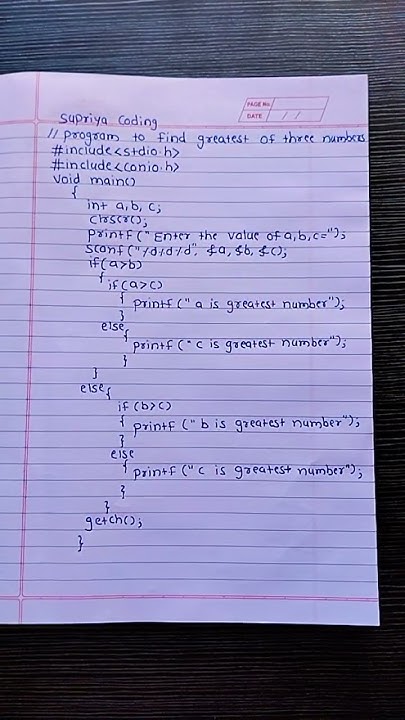 PAGE No.
DATE / /
Supriya Coding
// program to find greatest of three numbers
#include<stdio.h>
#include<conio.h>
void main()
{
int a,b,c;
clrscr();
printf("Enter the value of a,b,c=");
scanf("/d/d/d", &a,&b,&c);
if(a>b)
{
if(a>c)
{ printf(" a is greatest number");
}
else{
printf(" c is greatest number");
}
}
else{
if (b>c)
{ printf (" b is greatest number");
}
else
{ printf (" c is greatest number");
}
}
getch();
}